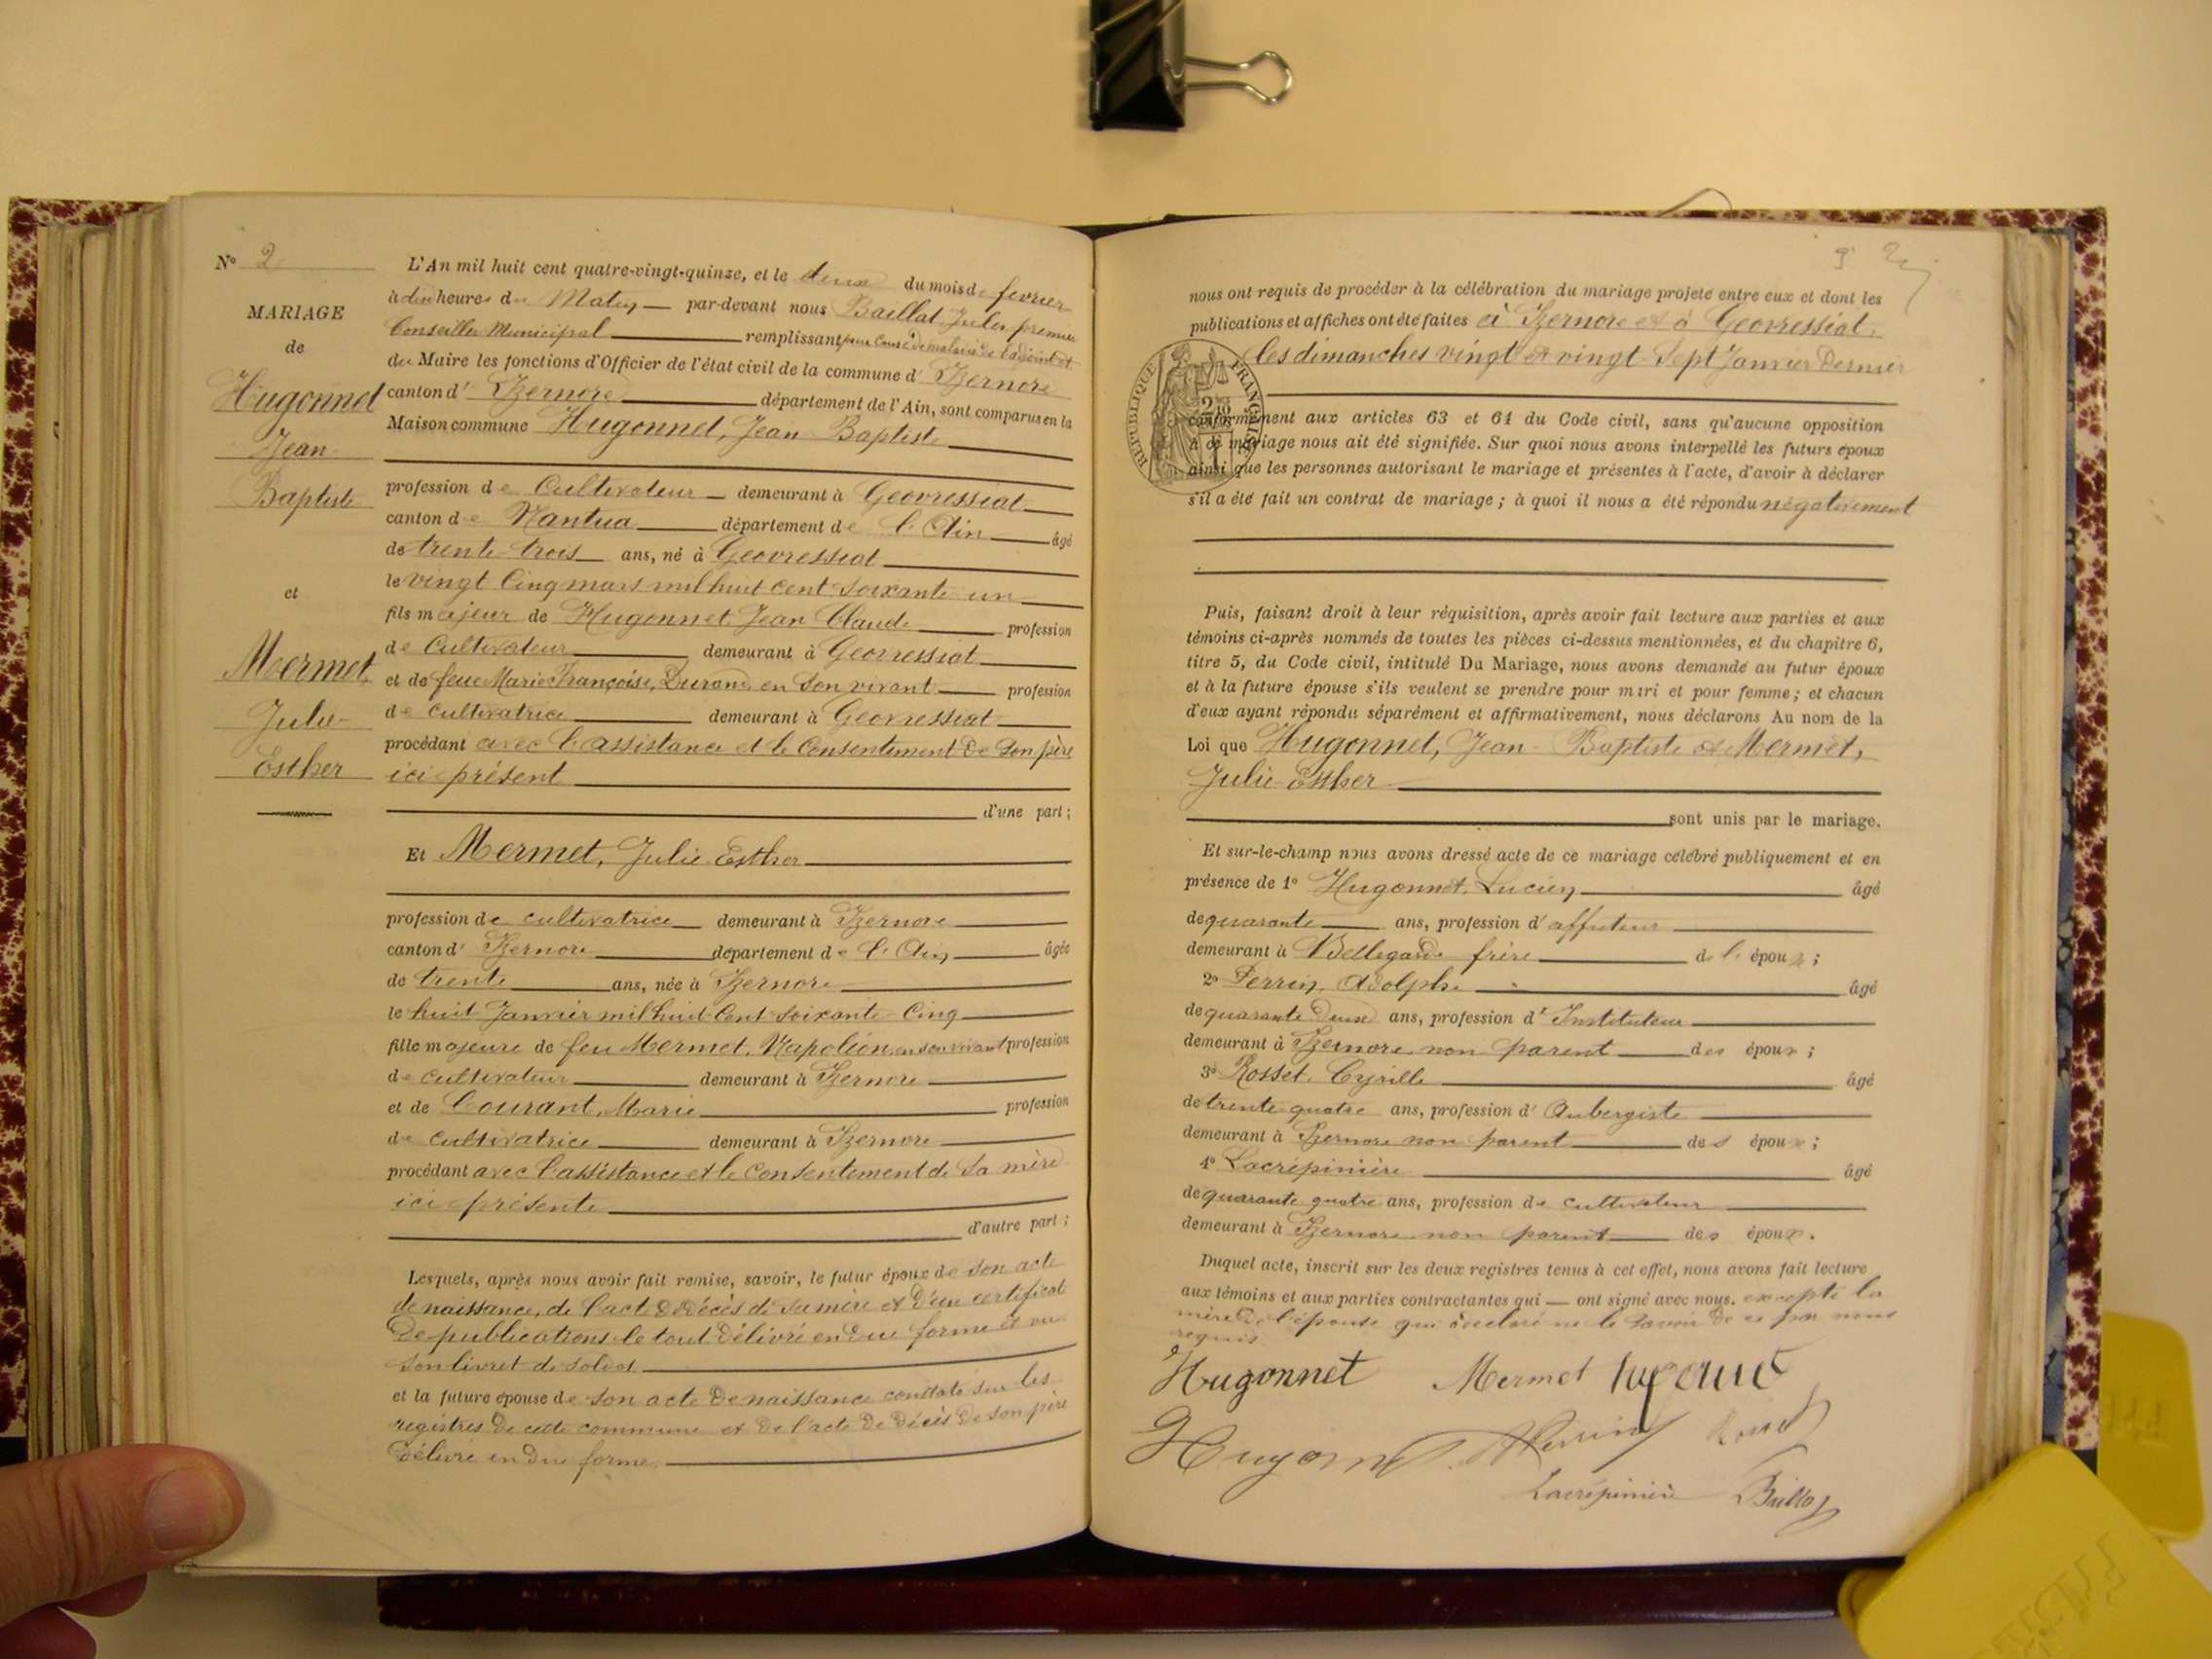 N° 2
MARIAGE
de
Hugonnet
Jean
Baptiste
et
Mermet
Julie
Esther
L'An mil huit cent quatre-vingt-quinze, et le deux du mois de fevrier
à dix heures du Matin par-devant nous Baillat Jules premier
Conseiller Municipal remplissant pour cause de maladie de l'adjoint et
du Maire les fonctions d'Officier de l'état civil de la commune d' Izernore
canton d' Izernore département de l'Ain, sont comparus en la
Maison commune Hugonnet, Jean Baptiste
profession de Cultivateur demeurant à Geovressiat
canton de Nantua département de l'Ain âgé
de trente-trois ans, né à Geovressiat
le vingt Cinq mars mil huit cent soixante un
fils majeur de Hugonnet Jean Claude profession
de Cultivateur demeurant à Geovressiat
et de feue Marie Françoise, Durand en son vivant profession
de cultivatrice demeurant à Geovressiat
procédant avec l'assistance et le Consentement de son père
ici présent
d'une part ;
Et Mermet, Julie Esther
profession de cultivatrice demeurant à Izernore
canton d' Izernore département de l'Ain âgée
de trente ans, née à Izernore
le huit Janvier mil huit Cent soixante Cinq
fille majeure de feu Mermet, Napoléon, en son vivant profession
de cultivateur demeurant à Izernore
et de Courant, Marie profession
de cultivatrice demeurant à Izernore
procédant avec l'assistance et le consentement de sa mère
ici présente
d'autre part ;
Lesquels, après nous avoir fait remise, savoir, le futur époux de son acte
de naissance, de l'acte de décès de sa mère et d'un certificat
de publications le tout délivré en due forme et vu
son livret de soldat
et la future épouse de son acte de naissance constaté sur les
registres de cette commune et de l'acte de décès de son père
délivré en due forme.
nous ont requis de procéder à la célébration du mariage projeté entre eux et dont les
publications et affiches ont été faites à Izernore et à Geovressiat,
les dimanches vingt et vingt-sept Janvier dernier
REPUBLIQUE FRANÇAISE
conformément aux articles 63 et 64 du Code civil, sans qu'aucune opposition
à ce mariage nous ait été signifiée. Sur quoi nous avons interpellé les futurs époux
ainsi que les personnes autorisant le mariage et présentes à l'acte, d'avoir à déclarer
s'il a été fait un contrat de mariage ; à quoi il nous a été répondu négativement
Puis, faisant droit à leur réquisition, après avoir fait lecture aux parties et aux
témoins ci-après nommés de toutes les pièces ci-dessus mentionnées, et du chapitre 6,
titre 5, du Code civil, intitulé Du Mariage, nous avons demandé au futur époux
et à la future épouse s'ils veulent se prendre pour mari et pour femme ; et chacun
d'eux ayant répondu séparément et affirmativement, nous déclarons Au nom de la
Loi que Hugonnet, Jean-Baptiste et Mermet,
Julie-Esther
sont unis par le mariage.
Et sur-le-champ nous avons dressé acte de ce mariage célébré publiquement et en
présence de 1° Hugonnet, Lucien âgé
de quarante ans, profession d'affuteur
demeurant à Bellegarde frère de l'époux ;
2° Perrin, Adolphe âgé
de quarante deux ans, profession d'Instituteur
demeurant à Izernore non parent des époux ;
3° Rosset, Cyrille âgé
de trente quatre ans, profession d'Aubergiste
demeurant à Izernore non parent des époux ;
4° Lacrépinière âgé
de quarante quatre ans, profession de cultivateur
demeurant à Izernore non parent des époux.
Duquel acte, inscrit sur les deux registres tenus à cet effet, nous avons fait lecture
aux témoins et aux parties contractantes qui — ont signé avec nous. excepté la
mère de l'épouse qui a déclaré ne le savoir de ce par nous
requis.
Hugonnet Mermet
Hugonnet Perrin Rosset
Lacrépinière